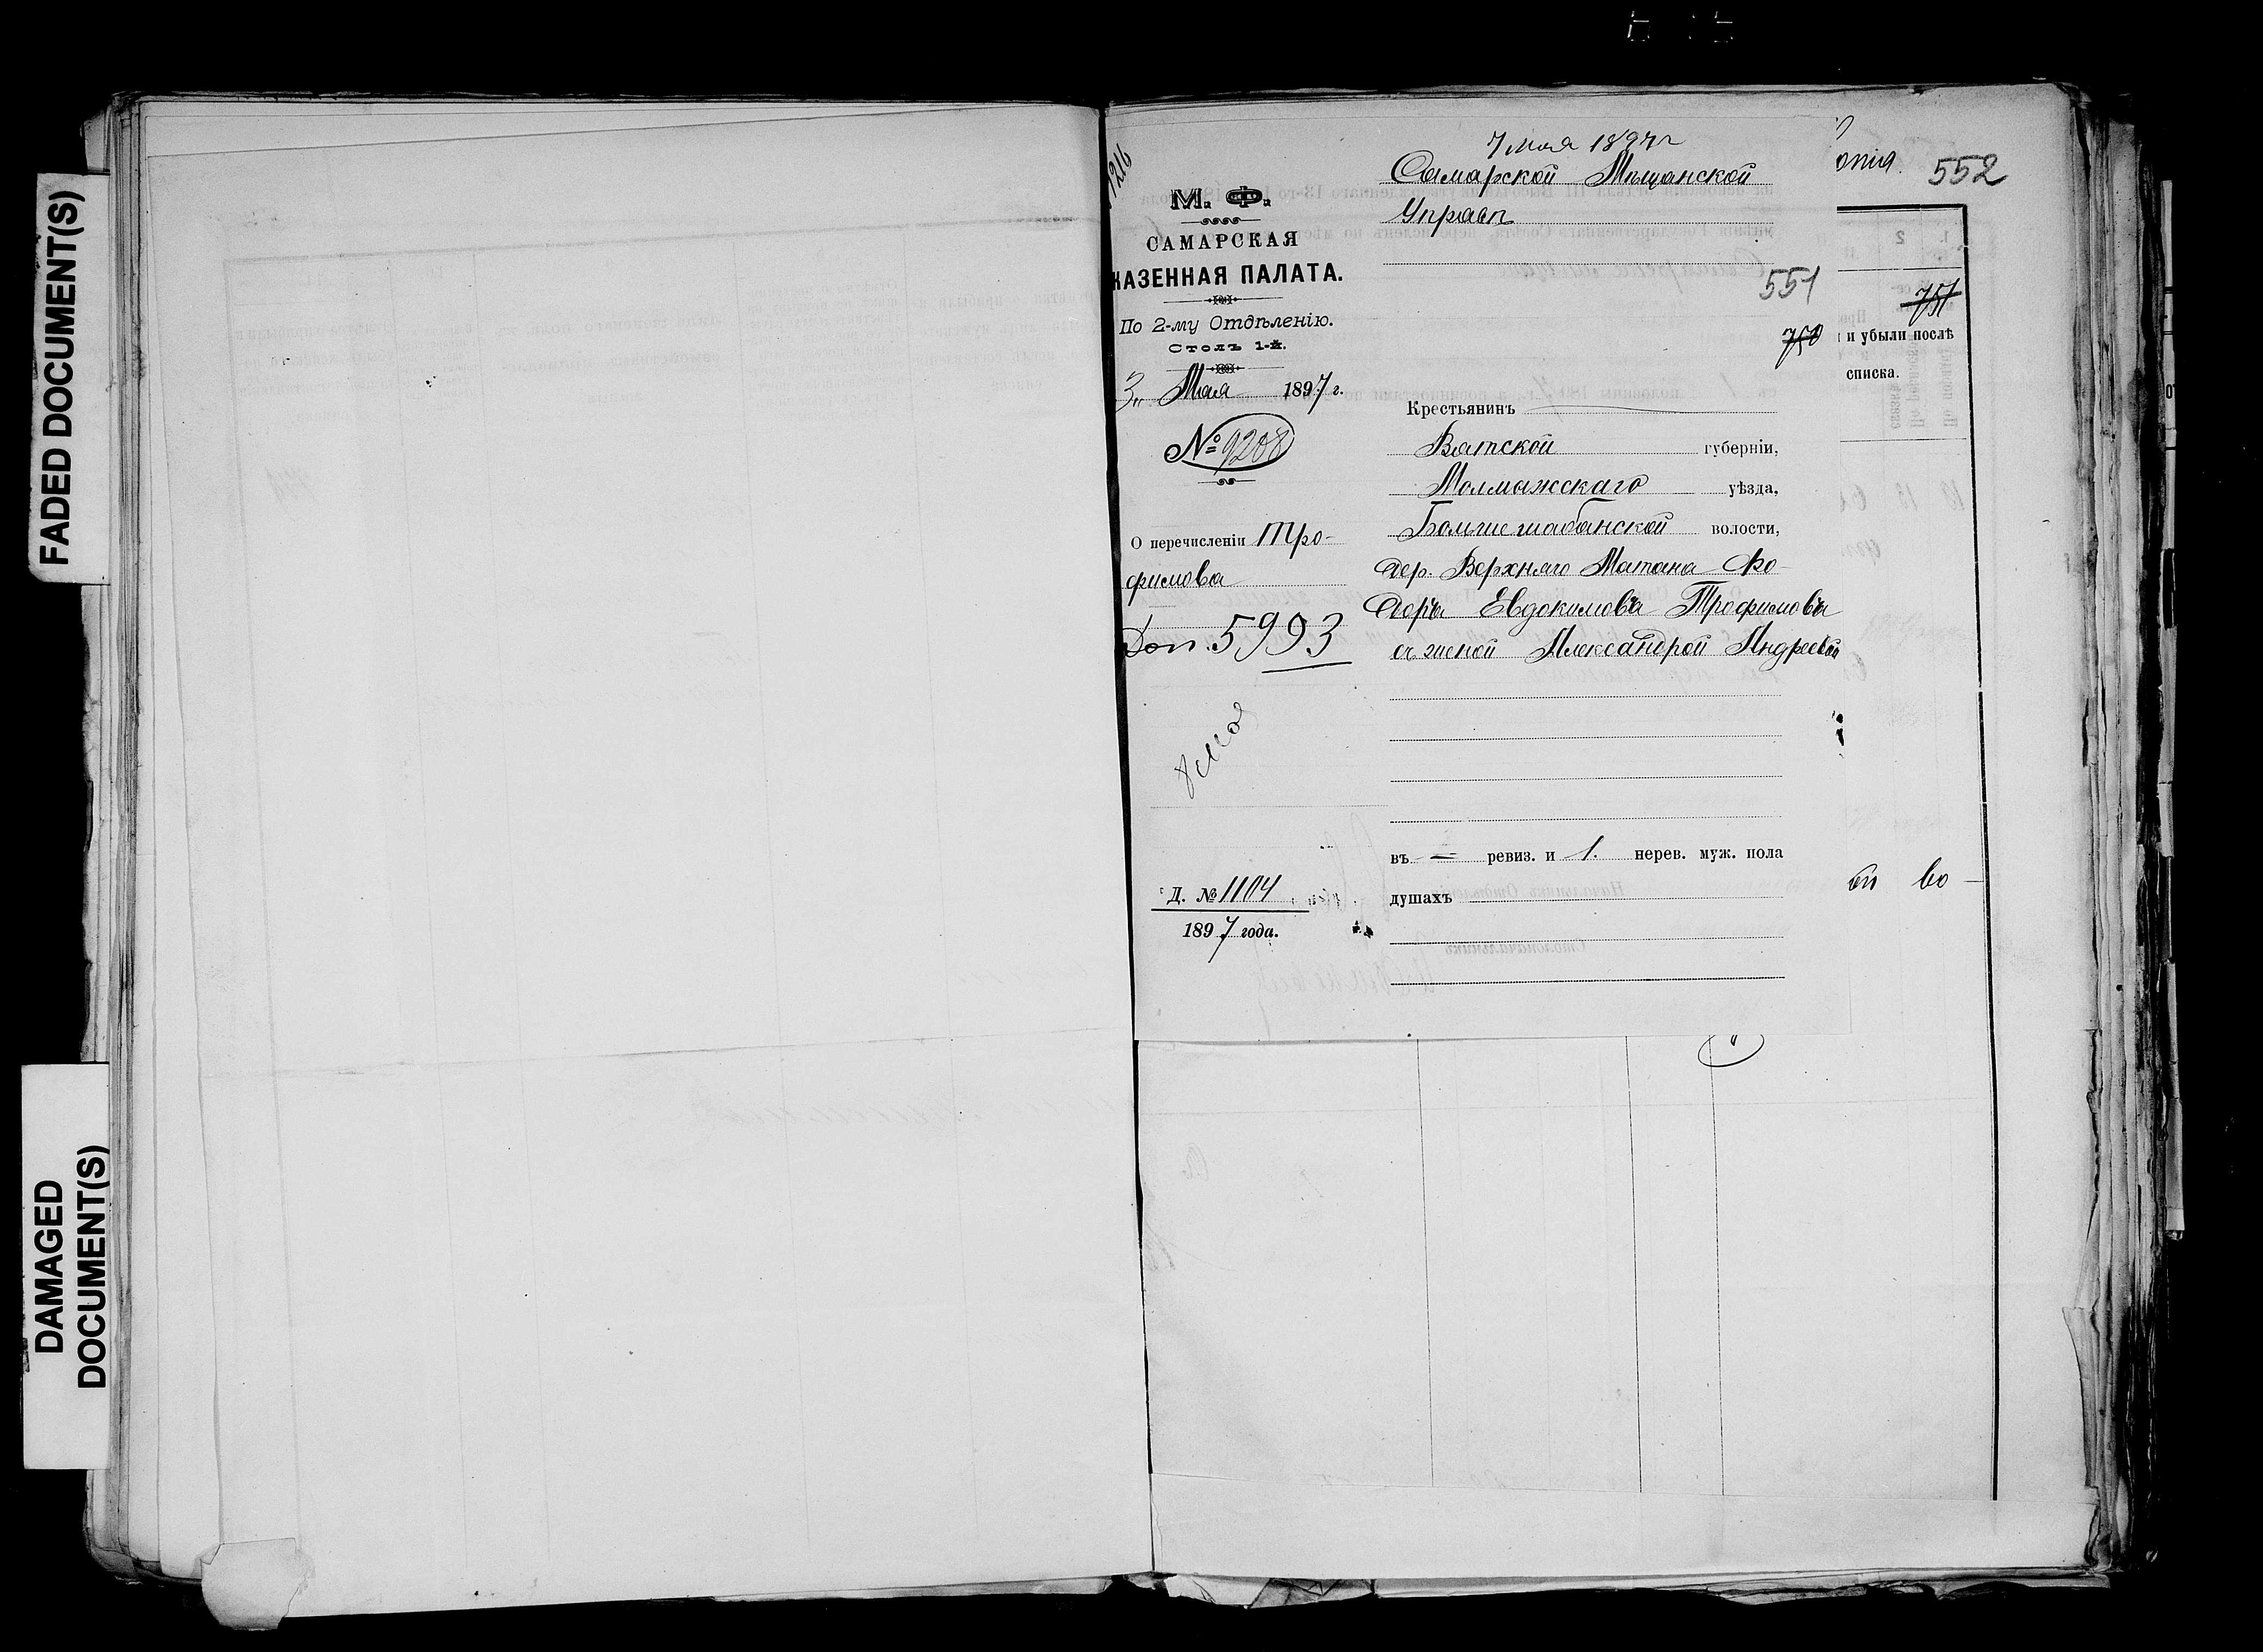 FADED DOCUMENT(S)
DAMAGED
DOCUMENT(S)
7 мая 1897 г
1216
М. Ф.
САМАРСКАЯ
КАЗЕННАЯ ПАЛАТА.
По 2-му Отдѣленію.
Столъ 1-й.
3 Мая 1897 г.
№ 9208
О перечисленіи Тро-
фимова
Доп. 5993
8 мая
Д. № 1104
1897 года.
Самарской Мѣщанской
Управѣ
551
750
Крестьянинъ
Вятской губерніи,
Малмыжскаго уѣзда,
Большешабанской волости,
дер. Верхняго Матана Фо-
доръ Евдокимовъ Трофимовъ
съ женой Александрой Андреевой
въ = ревиз. и 1. нерев. муж. пола
душахъ
опія. 552
751
и убыли послѣ
списка.
во